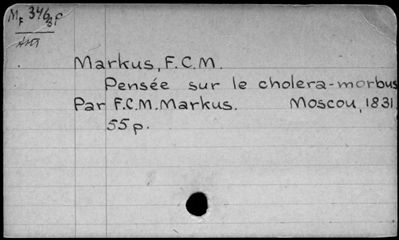 Markus, F.C.M.
Pensée sur le cholera-morbus
Par F.C.M. Markus. Moscou, 1831
55 p.